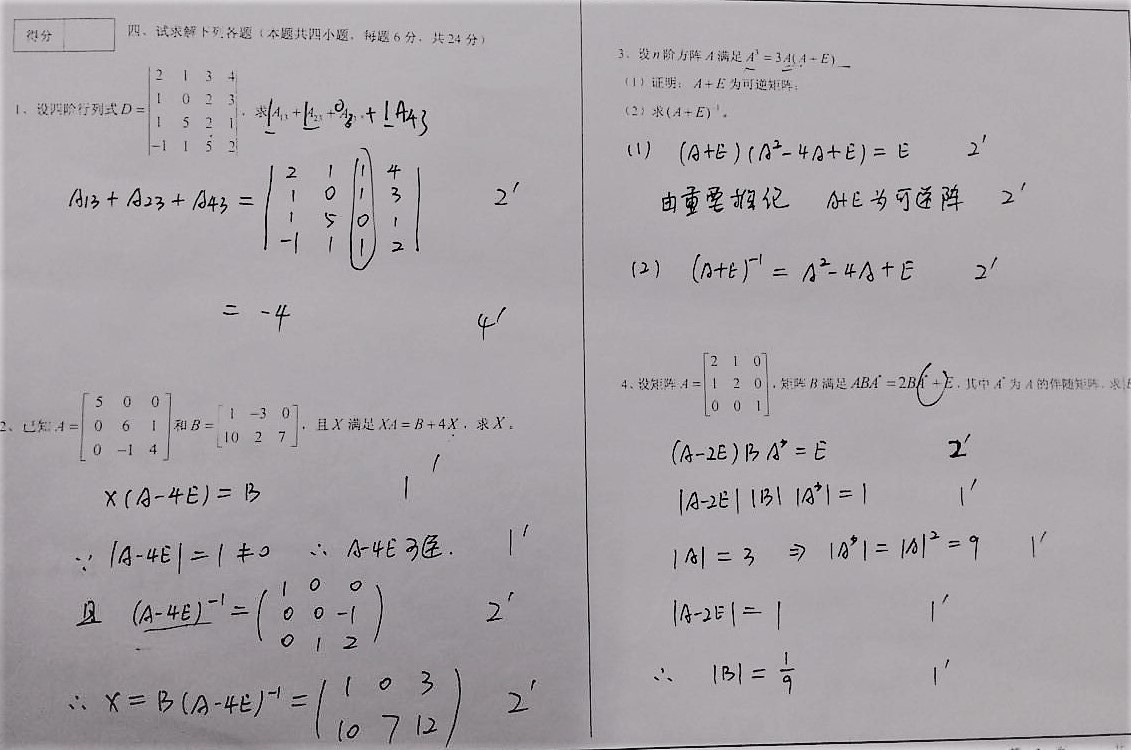 得分
四、试求解下列各题（本题共四小题，每题6分，共24分）
1、设四阶行列式D=
2 1 3 4
1 0 2 3
1 5 2 1
-1 1 5 2
，求 1A₁₃+1A₂₃+0 +1A43
A13 + A23 + A43 =
2 1 1 4
1 0 1 3
1 5 0 1
-1 1 1 2
2'
= -4 4'
2、已知A=
5 0 0
0 6 1
0 -1 4
和B=
1 -3 0
10 2 7
，且X满足XA=B+4X，求X。
X(A-4E) = B 1'
∵ |A-4E| = 1 ≠ 0 ∴ A-4E可逆. 1'
且 (A-4E)⁻¹ =
1 0 0
0 0 -1
0 1 2
2'
∴ X = B(A-4E)⁻¹ =
1 0 3
10 7 12
2'
3、设n阶方阵A满足A³=3A(A+E)
(1)证明：A+E为可逆矩阵；
(2)求(A+E)⁻¹。
(1) (A+E)(A²-4A+E) = E 2'
由重要推论 A+E为可逆阵 2'
(2) (A+E)⁻¹ = A²-4A+E 2'
4、设矩阵A=
2 1 0
1 2 0
0 0 1
，矩阵B满足ABA*=2BA*+E，其中A*为A的伴随矩阵，求
(A-2E)BA* = E 2'
|A-2E| |B| |A*| = 1 1'
|A| = 3 ⇒ |A*| = |A|² = 9 1'
|A-2E| = 1 1'
∴ |B| = 1/9 1'